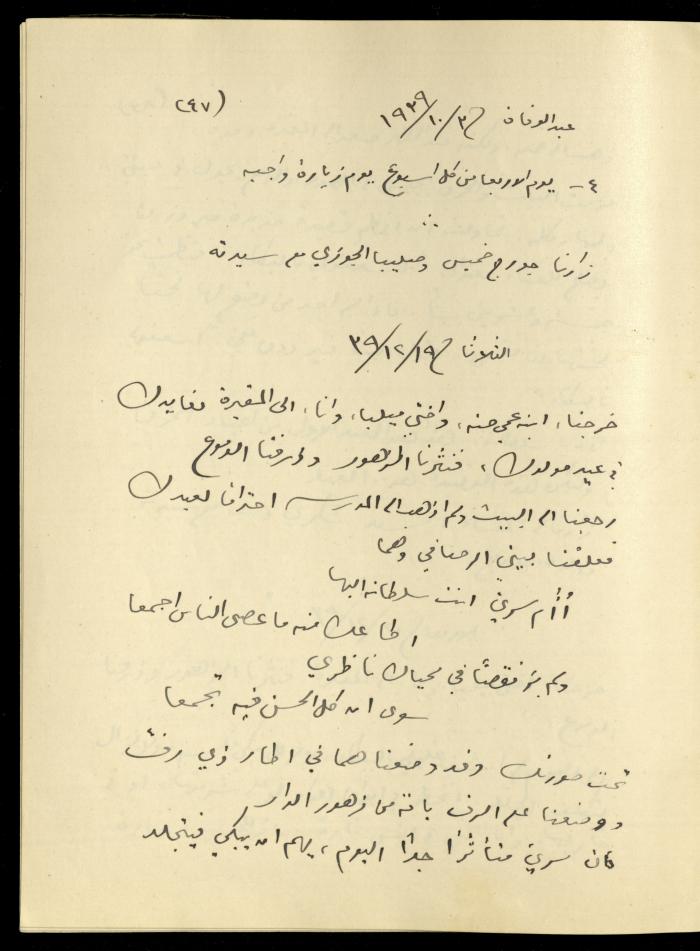 (٢٤٧)
عبد الوفاة في ٣/١٠/١٩٣٩
٤ - يوم الاربعا من كل اسبوع يوم زيارة واجبه
زارنا جورج خميس وصليبا الجوزي مع سيدته
الثلاثا في ١٩/١٢/٣٩
خرجنا، ابنة عمي حنه، واختي ميليا، وانا، الى المقبرة نعايدك
في عيد مولدك، فنثرنا الزهور وذرفنا الدموع
رجعنا الى البيت ولم اذهب الى المدرسه احتراما لعيدك
فعلقنا بيتي الرصافي وهما
أأم سري انت سلطانه البها
اطاعك منه ما عصى الناس اجمعا
ولم يرَ نقصًا في محياك ناظري
سوى ان كل الحسن فيه تجمعا
تحت صورتك وقد وضعناهما في اطار ذي رف
ووضعنا على الرف باقة من زهور الدار
كان سري متأثرًا جدًا اليوم، يهم ان يبكي فيتجلد